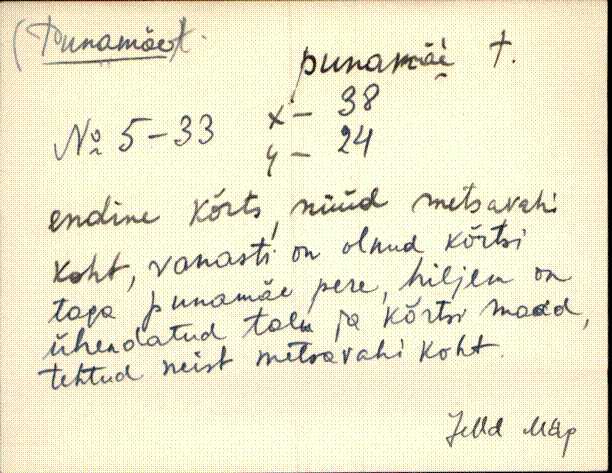 (Punamäe t.
punamäe t.
No 5-33 x - 38
y - 24
endine kõrts, nüüd metsavahi
koht, vanasti on olnud kõrtsi
taga punamäe pere, hiljem on
ühendatud talu ja kõrtsi maad,
tehtud neist metsavahi koht.